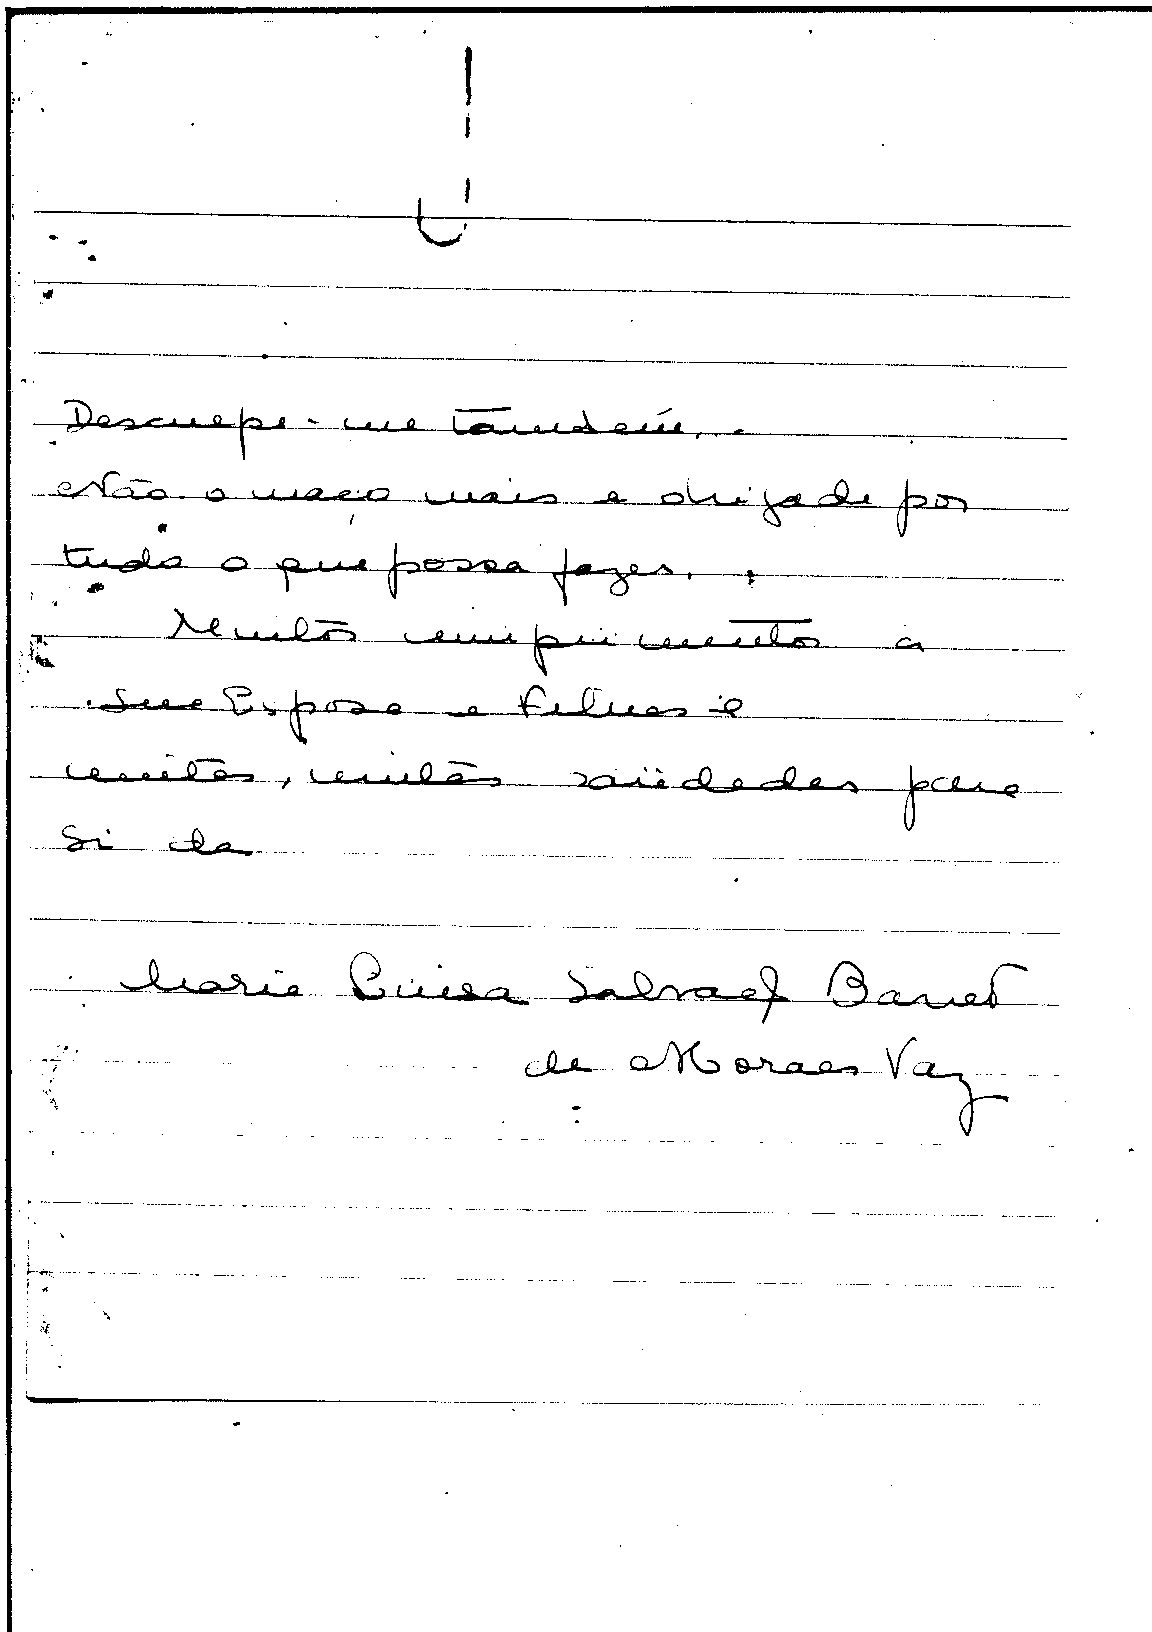 Desculpe-me também.
Não o maço mais e obrigada por
tudo o que possa fazer.
Muitos cumprimentos a
Sua Esposa e Filhas e
muitas, muitas saüdades para
Si da
Maria Luisa Salvação Barreto
de Moraes Vaz